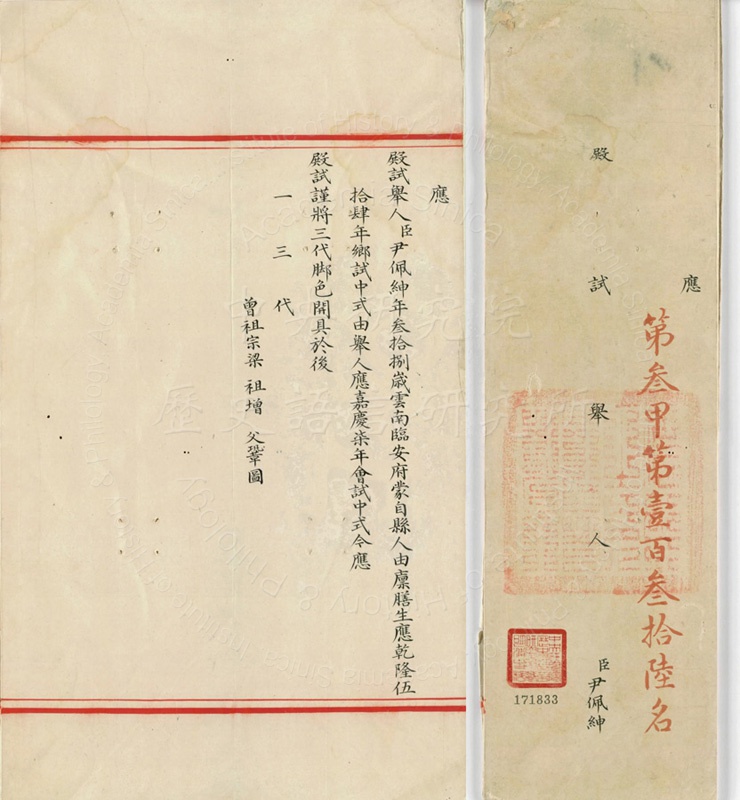 應
殿試舉人臣尹佩紳
第叁甲第壹百叁拾陸名
171833
應
殿試舉人臣尹佩紳年叁拾捌歲雲南臨安府蒙自縣人由廩膳生應乾隆伍
拾肆年鄉試中式由舉人應嘉慶柒年會試中式今應
殿試謹將三代脚色開具於後
一三代
曾祖宗梁 祖增 父鞏圖